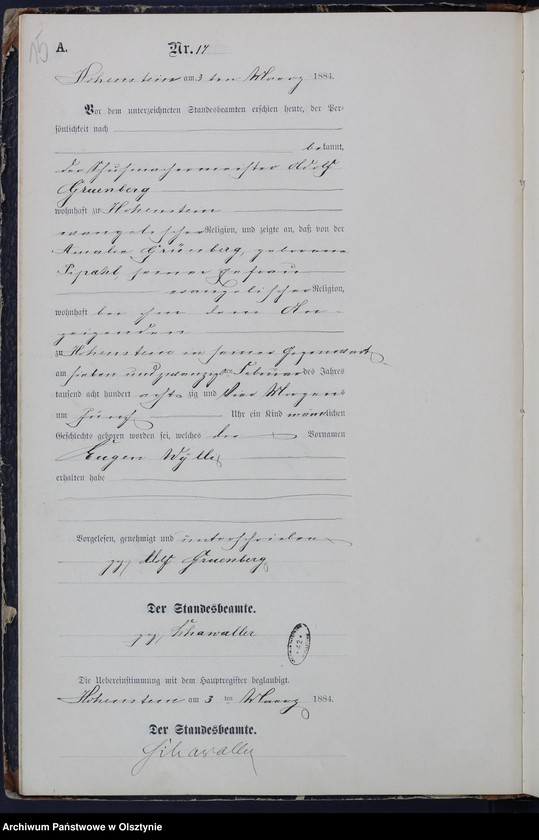 15
A.
Nr. 17
Hohenstein am 3 ten Maerz 1884.
Vor dem unterzeichneten Standesbeamten erschien heute, der Per-
sönlichkeit nach
bekannt,
der Schuhmachermeister Adolf
Gruenberg
wohnhaft zu Hohenstein
evangelischer Religion, und zeigte an, daß von der
Amalie Grünberg, geborene
seiner Ehefrau
evangelischer Religion,
wohnhaft bei ihm dem An-
zeigenden
zu Hohenstein in seiner Gegenwart
am sieben und zwanzigsten Februar des Jahres
tausend acht hundert achtzig und vier Morgens
um fünf Uhr ein Kind männlichen
Geschlechts geboren worden sei, welches die Vornamen
Eugen Wylli
erhalten habe
Vorgelesen, genehmigt und unterschrieben
gez. Adolf Gruenberg
Der Standesbeamte.
gez. Schawaller
Die Uebereinstimmung mit dem Hauptregister beglaubigt.
Hohenstein am 3 ten Maerz 1884.
Der Standesbeamte.
Schawaller
Archiwum Państwowe w Olsztynie